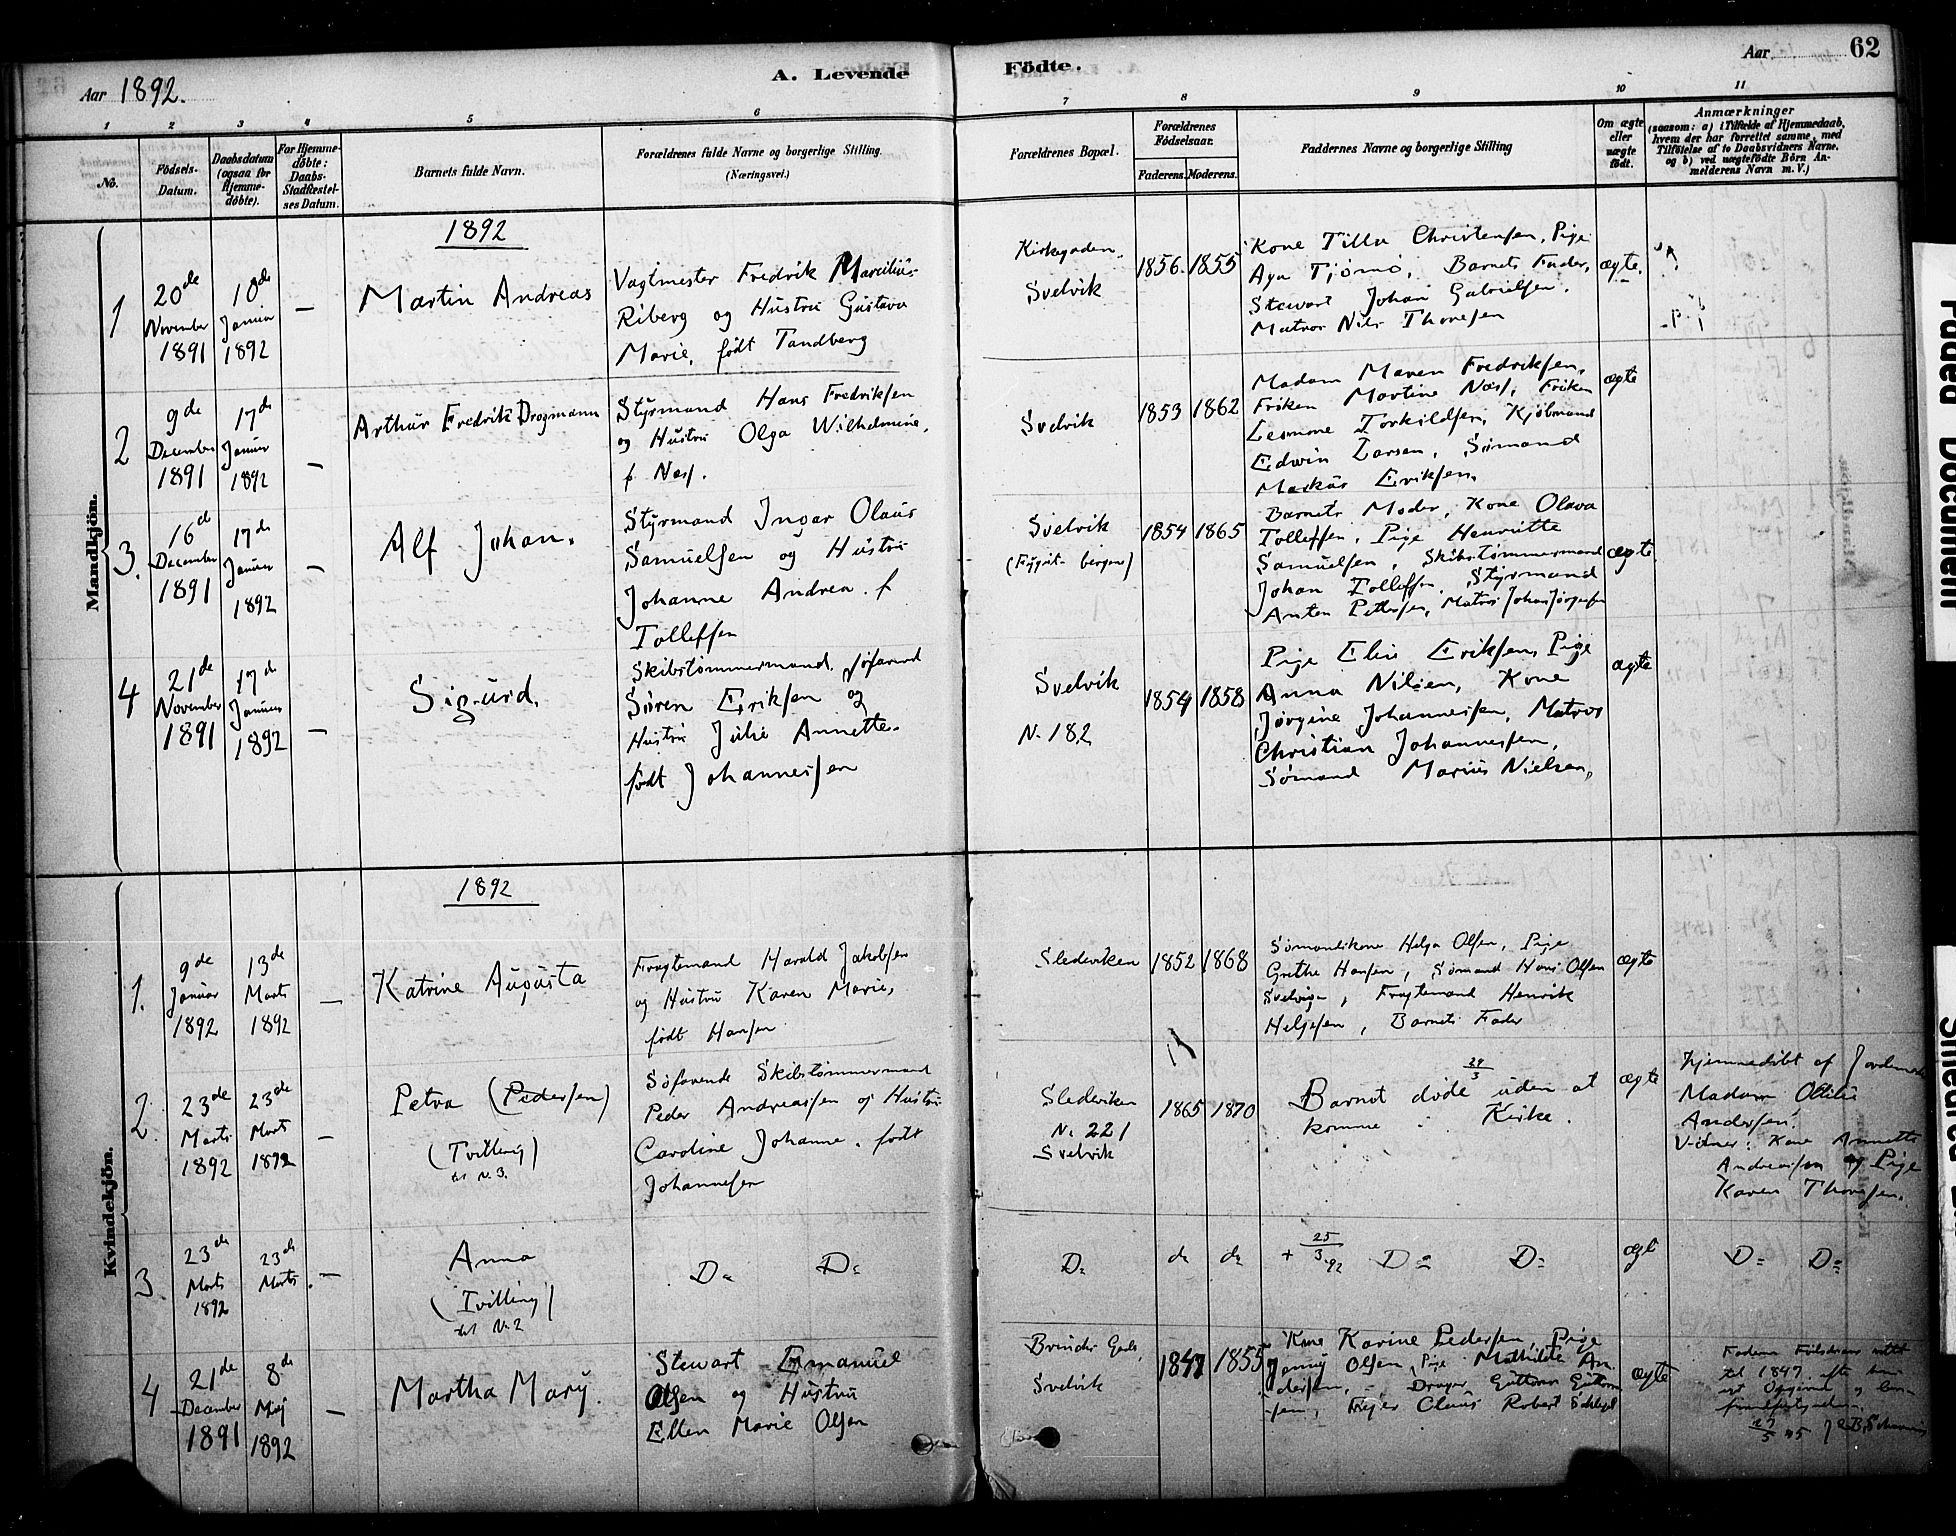 Aar 1892.
A. Levende
Födte.
Aar
62
1 2 3 4 5 6
7 8 9 10 11
No.
Födsels-Datum.
Daabsdatum (ogsaa for Hjemmedöbte).
For Hjemmedöbte: Daabs-Stadfæstelses Datum.
Barnets fulde Navn.
Forældrenes fulde Navne og borgerlige Stilling.
(Næringsvei.)
Forældrenes Bopæl.
Forældrenes Födselsaar.
Faderens. Moderens.
Faddernes Navne og borgerlige Stilling
Om ægte eller uægte födt.
Anmærkninger
(saasom: a) i Tilfælde af Hjemmedaab,
hvem der har forrettet samme, med
Tilföielse af to Daabsvidners Navne.
og b) ved uægtefödte Börn An-
melderens Navn m. V.)
Mandkjön.
1892
1
20de November 1891
10de Januar 1892
—
Martin Andreas
Vagtmester Fredrik
Riberg og Hustru Gustava
Marie, født Tandberg
Kirkegaden.
Svelvik
1856. 1855
Kone Tilla Christensen, Pige
Aga Tjømø, Barnets Fader,
Stewart Johan Gabrielsen.
Matros Nils Thoresen
ægte.
2
9de December 1891
17de Januar 1892
—
Arthur Fredrik Drogmann
Styrmand Hans Fredriksen
og Hustru Olga Wilhelmine,
f. Næss.
Svelvik
1853 1862
Madam Maren Fredriksen,
Frøken Martine Næss, Frøken
Torkildsen, Kjøbmand
Edwin Larsen, Sømand
Markus Eriksen.
ægte
3.
16d December 1891
17de Januar 1892
—
Alf Johan.
Styrmand Ingar Olaus
Samuelsen og Hustru
Johanne Andrea. f
Tolleffsen
Svelvik
1854 1865
Barnets Moder, Kone Olava
Tolleffsen, Pige Henriette
Samuelsen, Skibstømmermand
Johan Tolleffsen. Styrmand
Anton Pettersen, Matros Johan Jörgensen
ægte
4
21de November 1891
17de Januar 1892
—
Sigurd.
Skibstømmermand. søfarend
Søren Eriksen og
Hustru Julie Annette.
født Johannessen
Svelvik
N. 182
1854 1858
Pige Elise Eriksen, Pige
Anna Nilsen, Kone
Jørgine Johannessen, Matros
Christian Johannessen,
Sømand Marius Nielsen,
ægte
Kvindekjön.
1892
1.
9de Januar 1892
13de Marts 1892
—
Katrine Augusta
Fragtemand Harald Jakobsen
og Hustru Karen Marie,
født Hansen
Slederiken
1852 1868
Sømandskone Helga Olsen, Pige
Grethe Hansen, Sømand Hans Olsen
Svelvigen, Fragtemand Henrik
Helgesen, Barnets Fader
ægte
2.
23de Marts 1892
23de Marts 1892
—
Petra (Pedersen)
(Tvilling)
til N. 3.
Søfarende Skibstømmermand
Peder Andreassen og Hustru
Caroline Johanne. født
Johannesen
Slederiken
N. 221
Svelvik
1865 1870
24/3
Barnet døde uden at
komme i Kirke.
ægte
Hjemmedöbt af Jordemoder
Madam Ottilie
Andersen.
Vidner: Kone Annette
Andreassen og Pige
Karen Thoresen.
3.
23de Marts 1892
23de Marts.
—
Anna
(Tvilling)
til N. 2
Do Do
Do
do do
+ 25/3 92 Do Do
ægte
Do Do
4
21de December 1891
8de Maj 1892
—
Martha Mary.
Stewart Emanuel
Olsen og Hustru
Ellen Marie Olsen
Svelvik
1847 1855
Kone Karine Pedersen, Pige
Jenny Olsen, Pige Mathilde An-
dersen, Drager Guttorm Guttorm-
sen, Claus Robert
ægte
Faderens Fødselsaar rettet
til 1847 efter
27/5 45